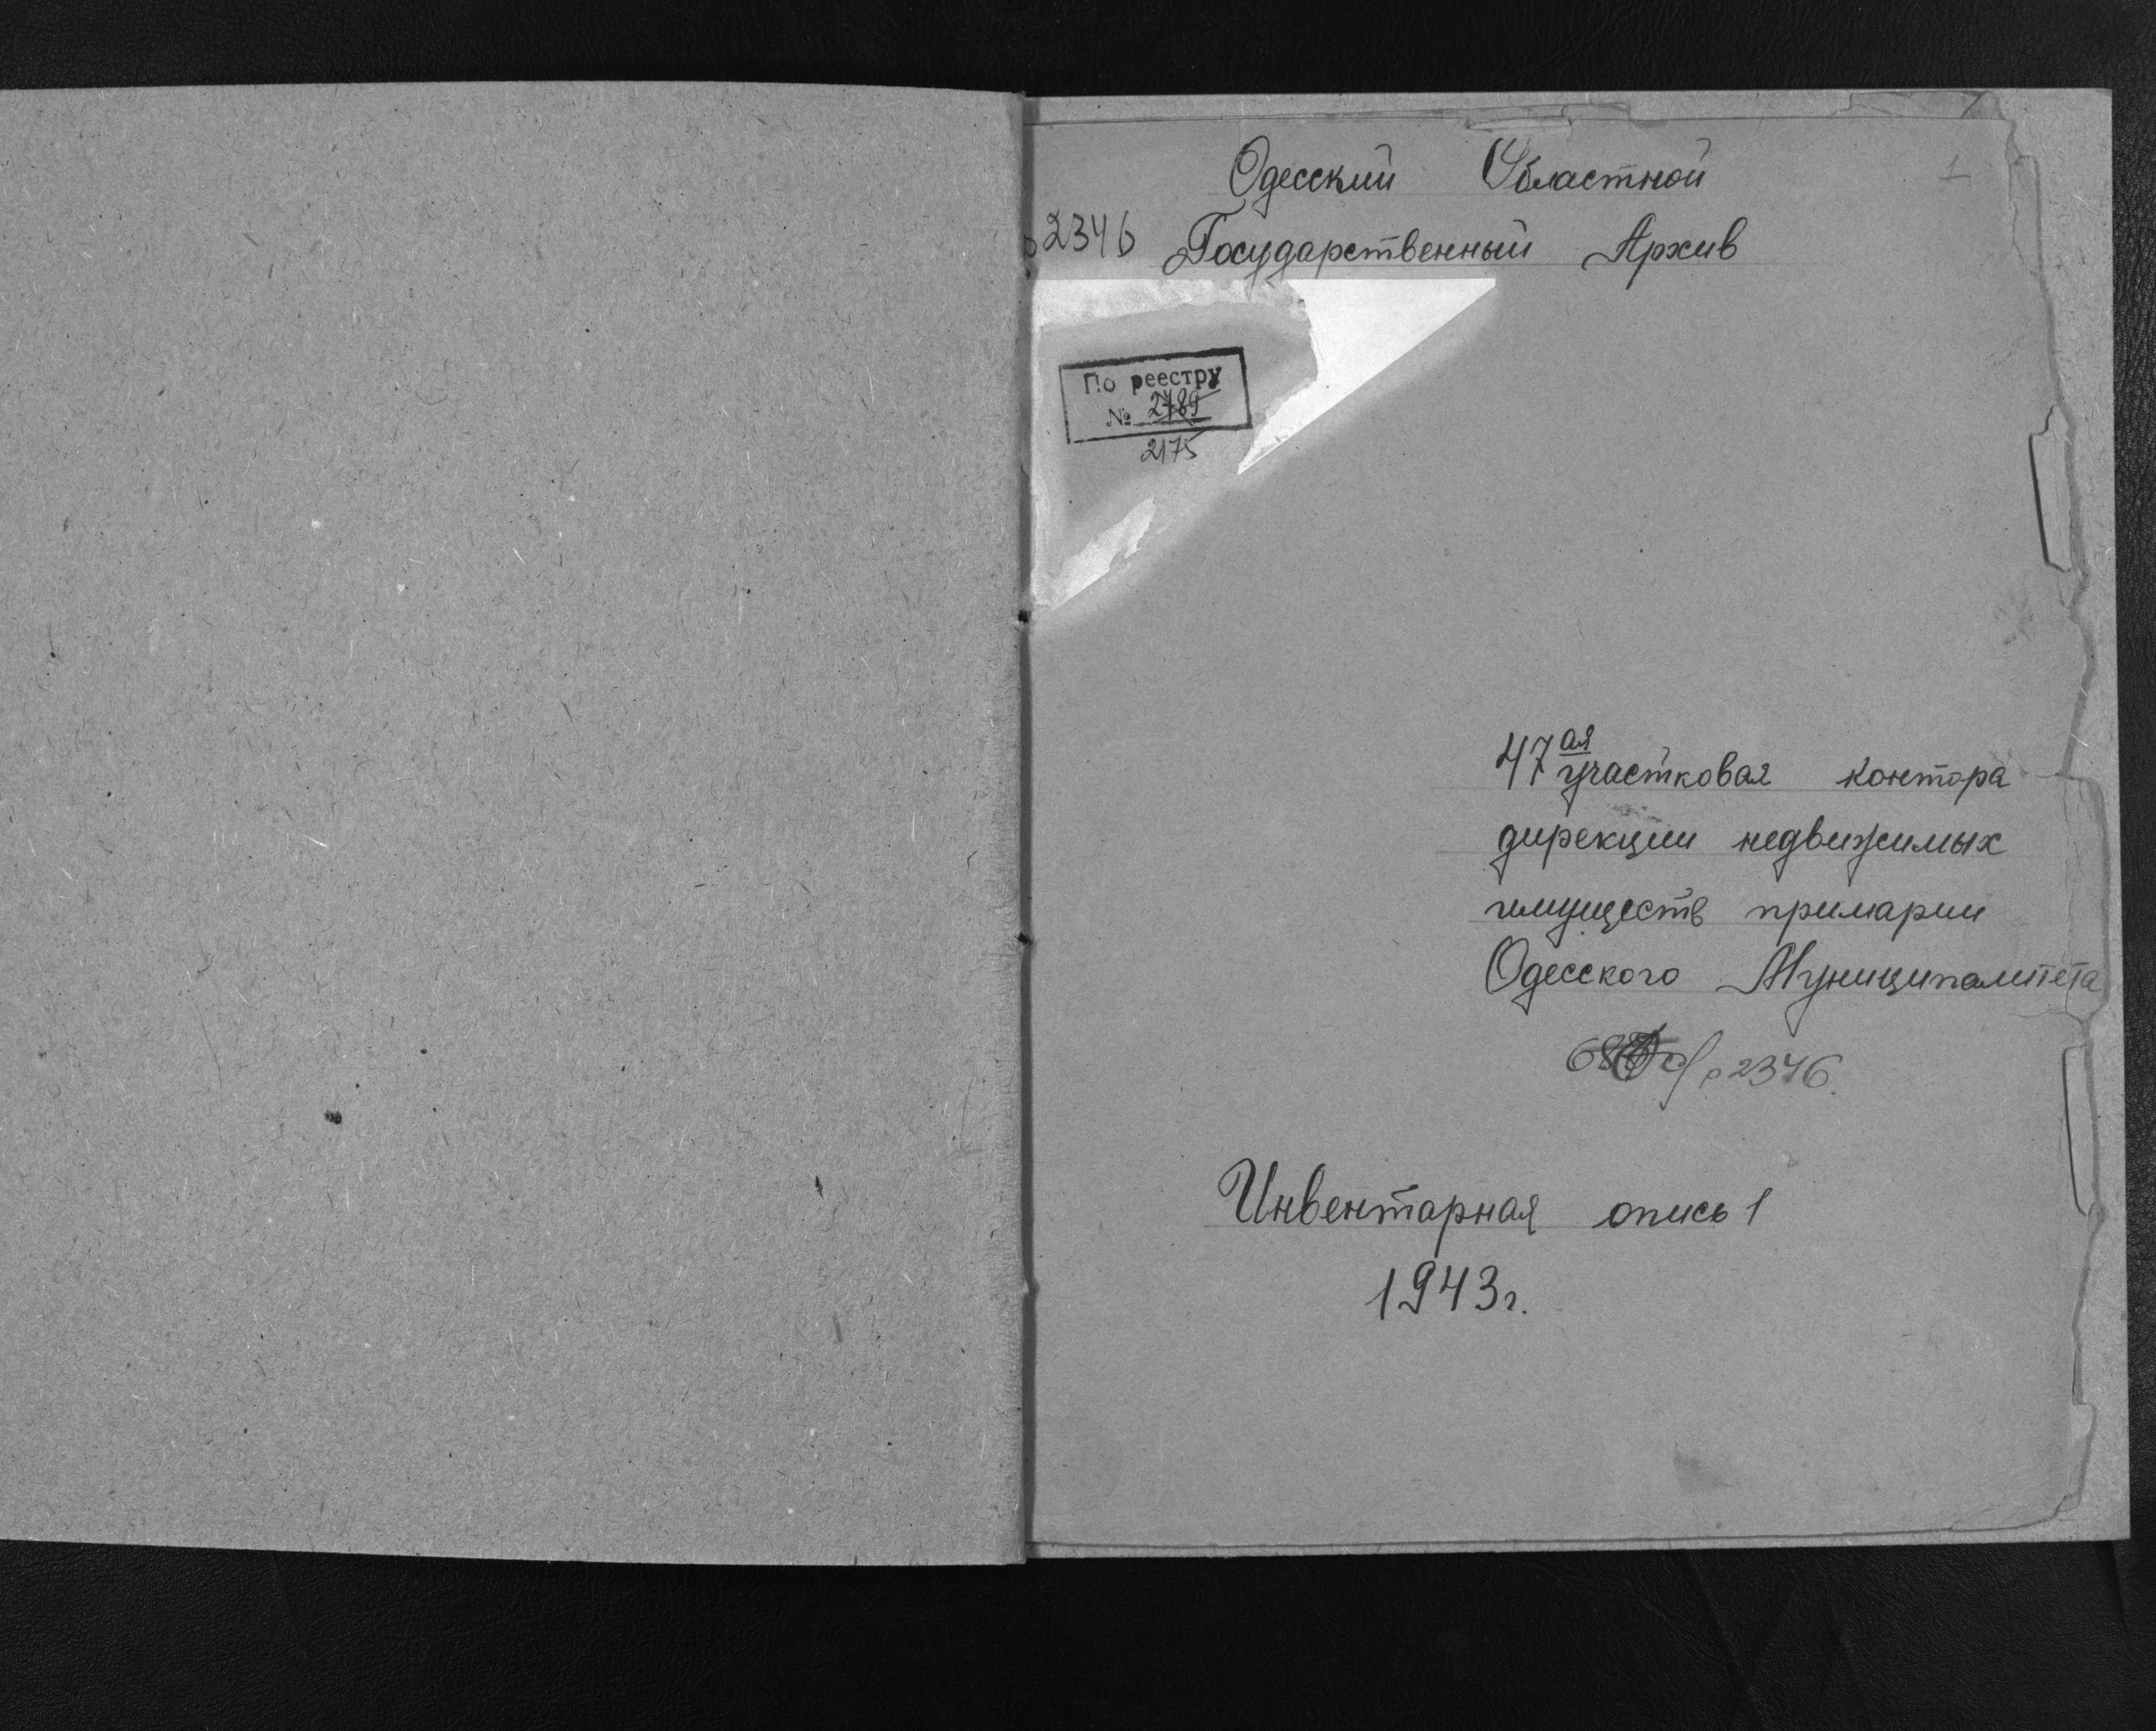 Одесский Областной
1
р 2346 Государственный Архив
По реестру
№ 2789
2175
47ая участковая контора
дирекции недвижимых
имуществ примарии
Одесского Муниципалитета
р 2346.
Инвентарная опись 1
1943г.